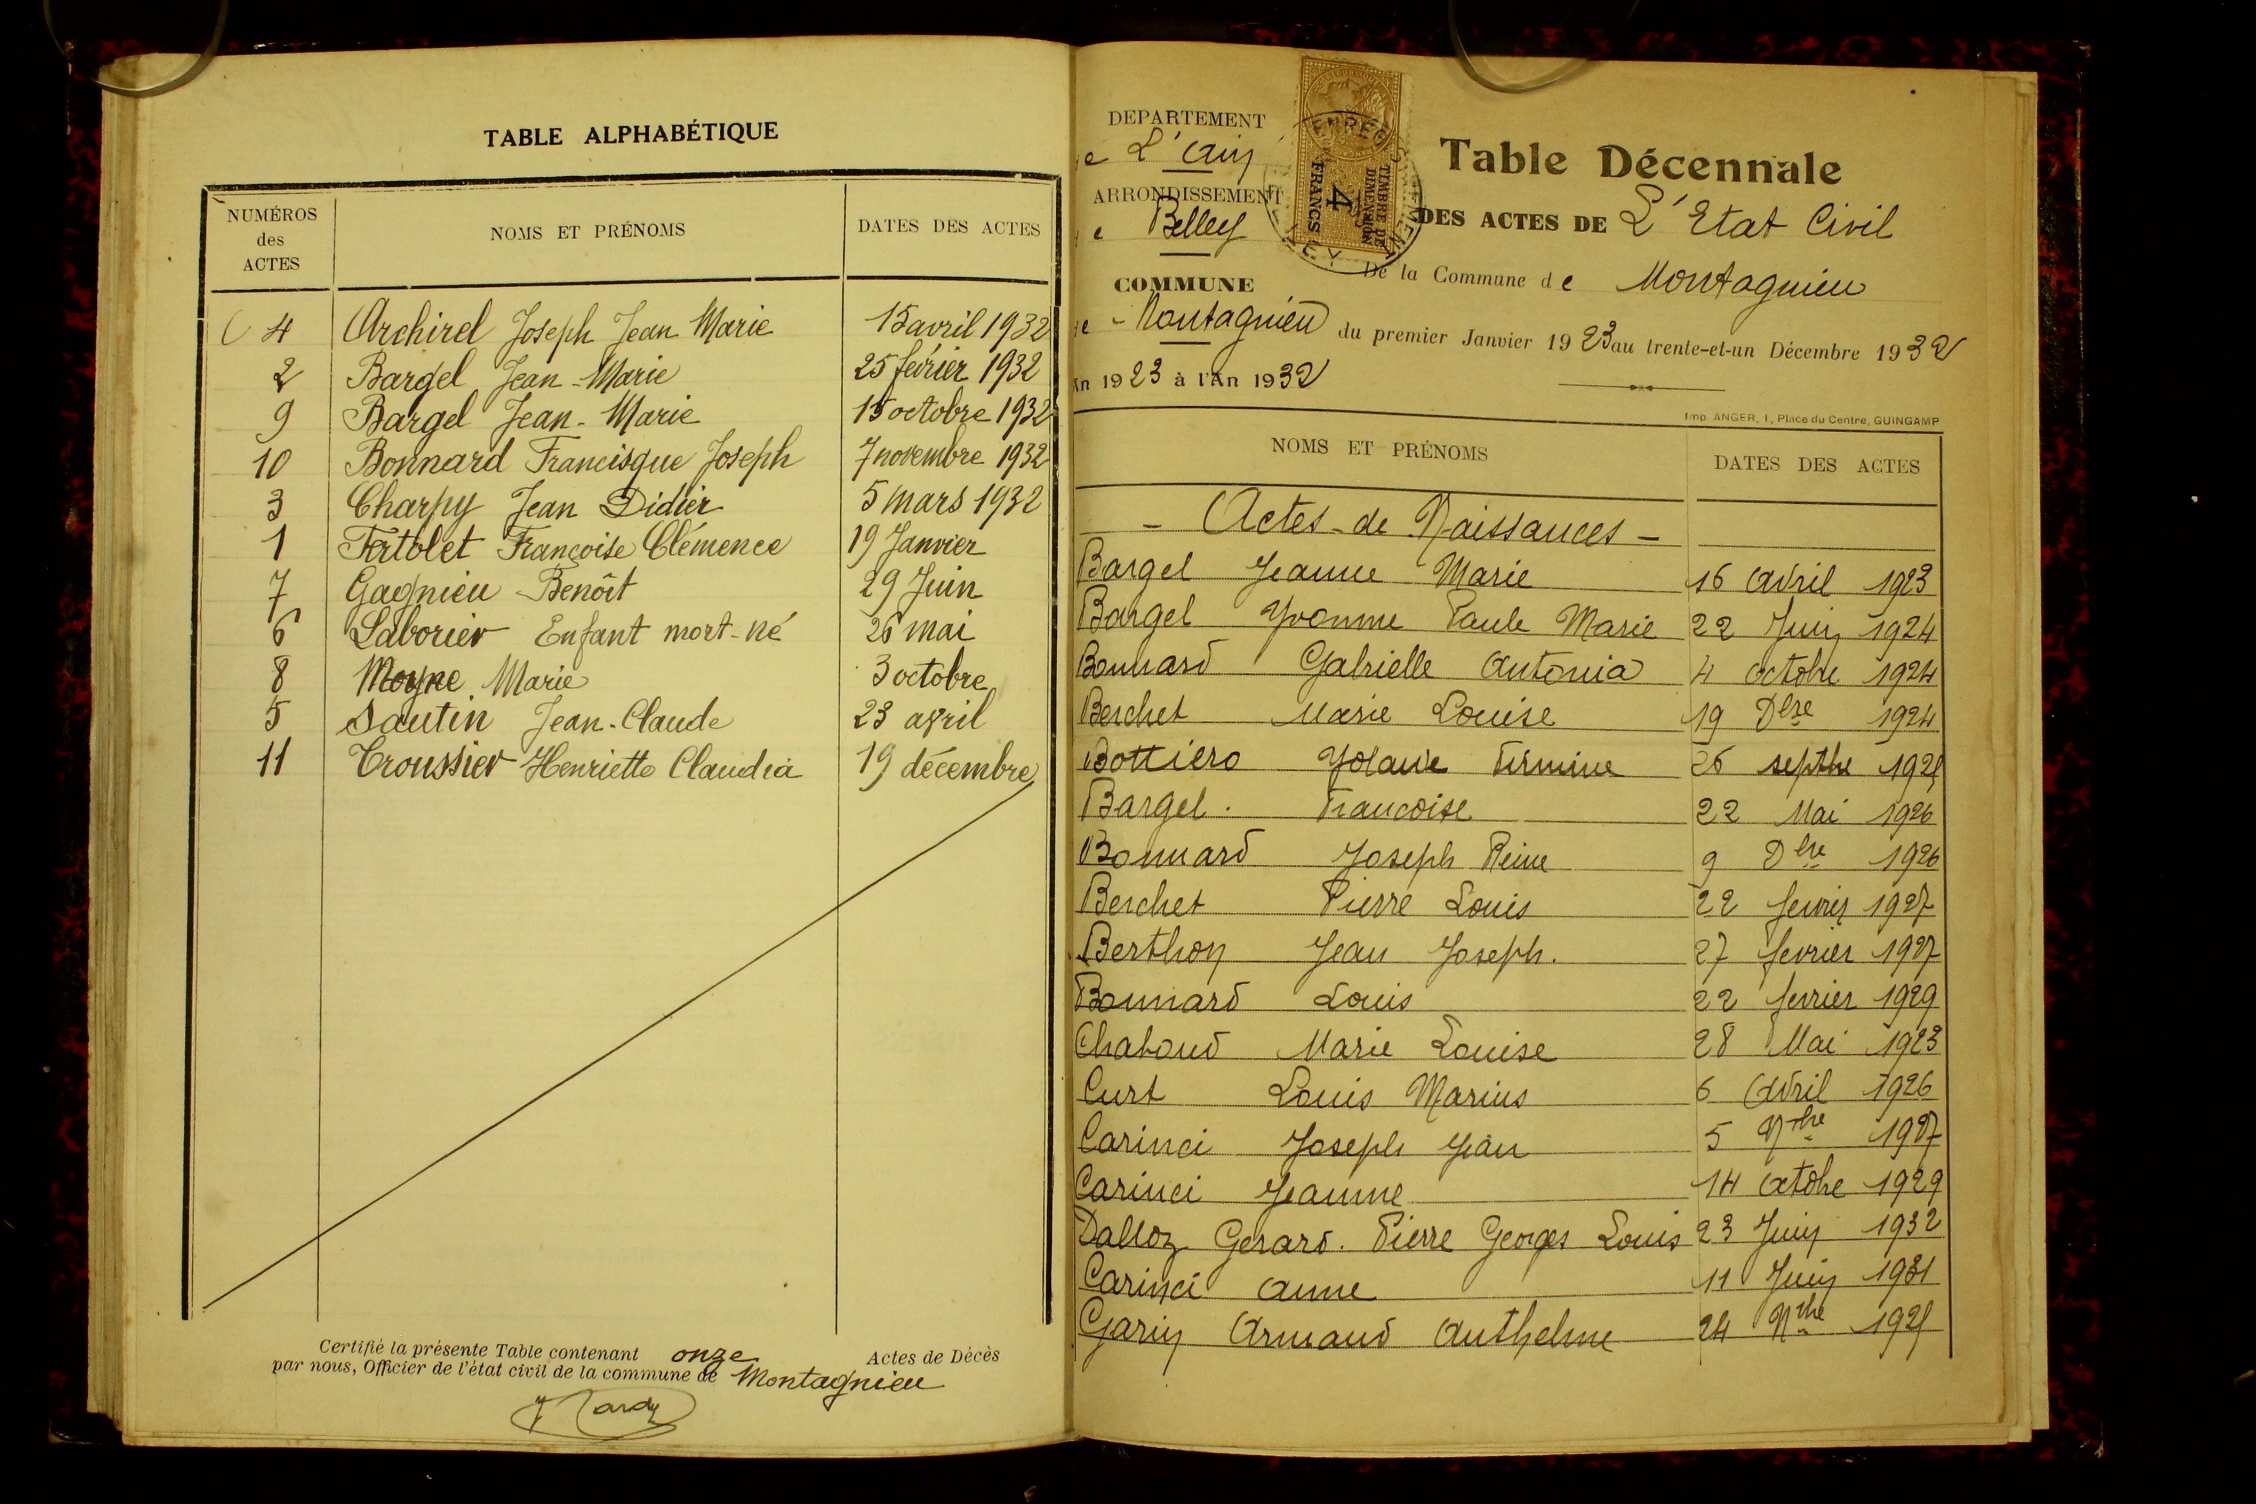 TABLE ALPHABÉTIQUE
NUMÉROS
des
ACTES
NOMS ET PRÉNOMS
DATES DES ACTES
4 Archirel Joseph Jean Marie 15 avril 1932
2 Bargel Jean-Marie 25 février 1932
9 Bargel Jean-Marie 15 octobre 1932
10 Bonnard Francisque Joseph 7 novembre 1932
3 Charpy Jean Didier 5 mars 1932
1 Françoise Clémence 19 Janvier
7 Gagnieu Benoît 29 Juin
6 Laborier Enfant mort-né 26 mai
8 Moyne Marie 3 octobre
5 Sautin Jean-Claude 23 avril
11 Troussier Henriette Claudia 19 décembre
Certifié la présente Table contenant onze Actes de Décès
par nous, Officier de l'état civil de la commune de Montagnieu
DEPARTEMENT
e L'Ain
ARRONDISSEMENT
e Belley
COMMUNE
e Montagnieu
An 1923 à l'An 1932
TIMBRE DE
DIMENSION
4
FRANCS
Table Décennale
DES ACTES DE L'Etat Civil
De la Commune de Montagnieu
du premier Janvier 1923 au trente-et-un Décembre 1932
Imp. ANGER, 1, Place du Centre, GUINGAMP
NOMS ET PRÉNOMS
DATES DES ACTES
- Actes de Naissances -
Bargel Jeanne Marie 16 Avril 1923
Bargel Yvonne Paule Marie 22 Juin 1924
Bonnard Gabrielle Antonia 4 octobre 1924
Berchet Marie Louise 19 Dbre 1924
Bottiero Yolande Firmine 26 septbre 1925
Bargel. Francoise 22 Mai 1926
Bonnard Joseph Reine 9 Dbre 1926
Berchet Pierre Louis 22 fevrier 1927
Berthon Jean Joseph. 27 fevrier 1927
Bonnard Louis 22 fevrier 1929
Chaboud Marie Louise 28 Mai 1923
Curt Louis Marius 6 Avril 1926
Carinci Joseph Jean 5 Nbre 1927
Carinci Jeanne 14 octobre 1929
Dalloz Gerard. Pierre Georges Louis 23 Juin 1932
Carinci Anne 11 Juin 1931
Garin Armand Anthelme 24 Nbre 1925